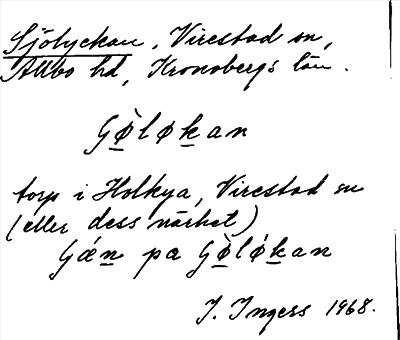 Sjölyckan, Virestad sn,
Allbo hd, Kronobergs län.
Gø̀løkan
torp i Holkya, Virestad sn
(eller dess närhet)
Gǽn pa Gø̀lǿkan
I. Ingers 1968.